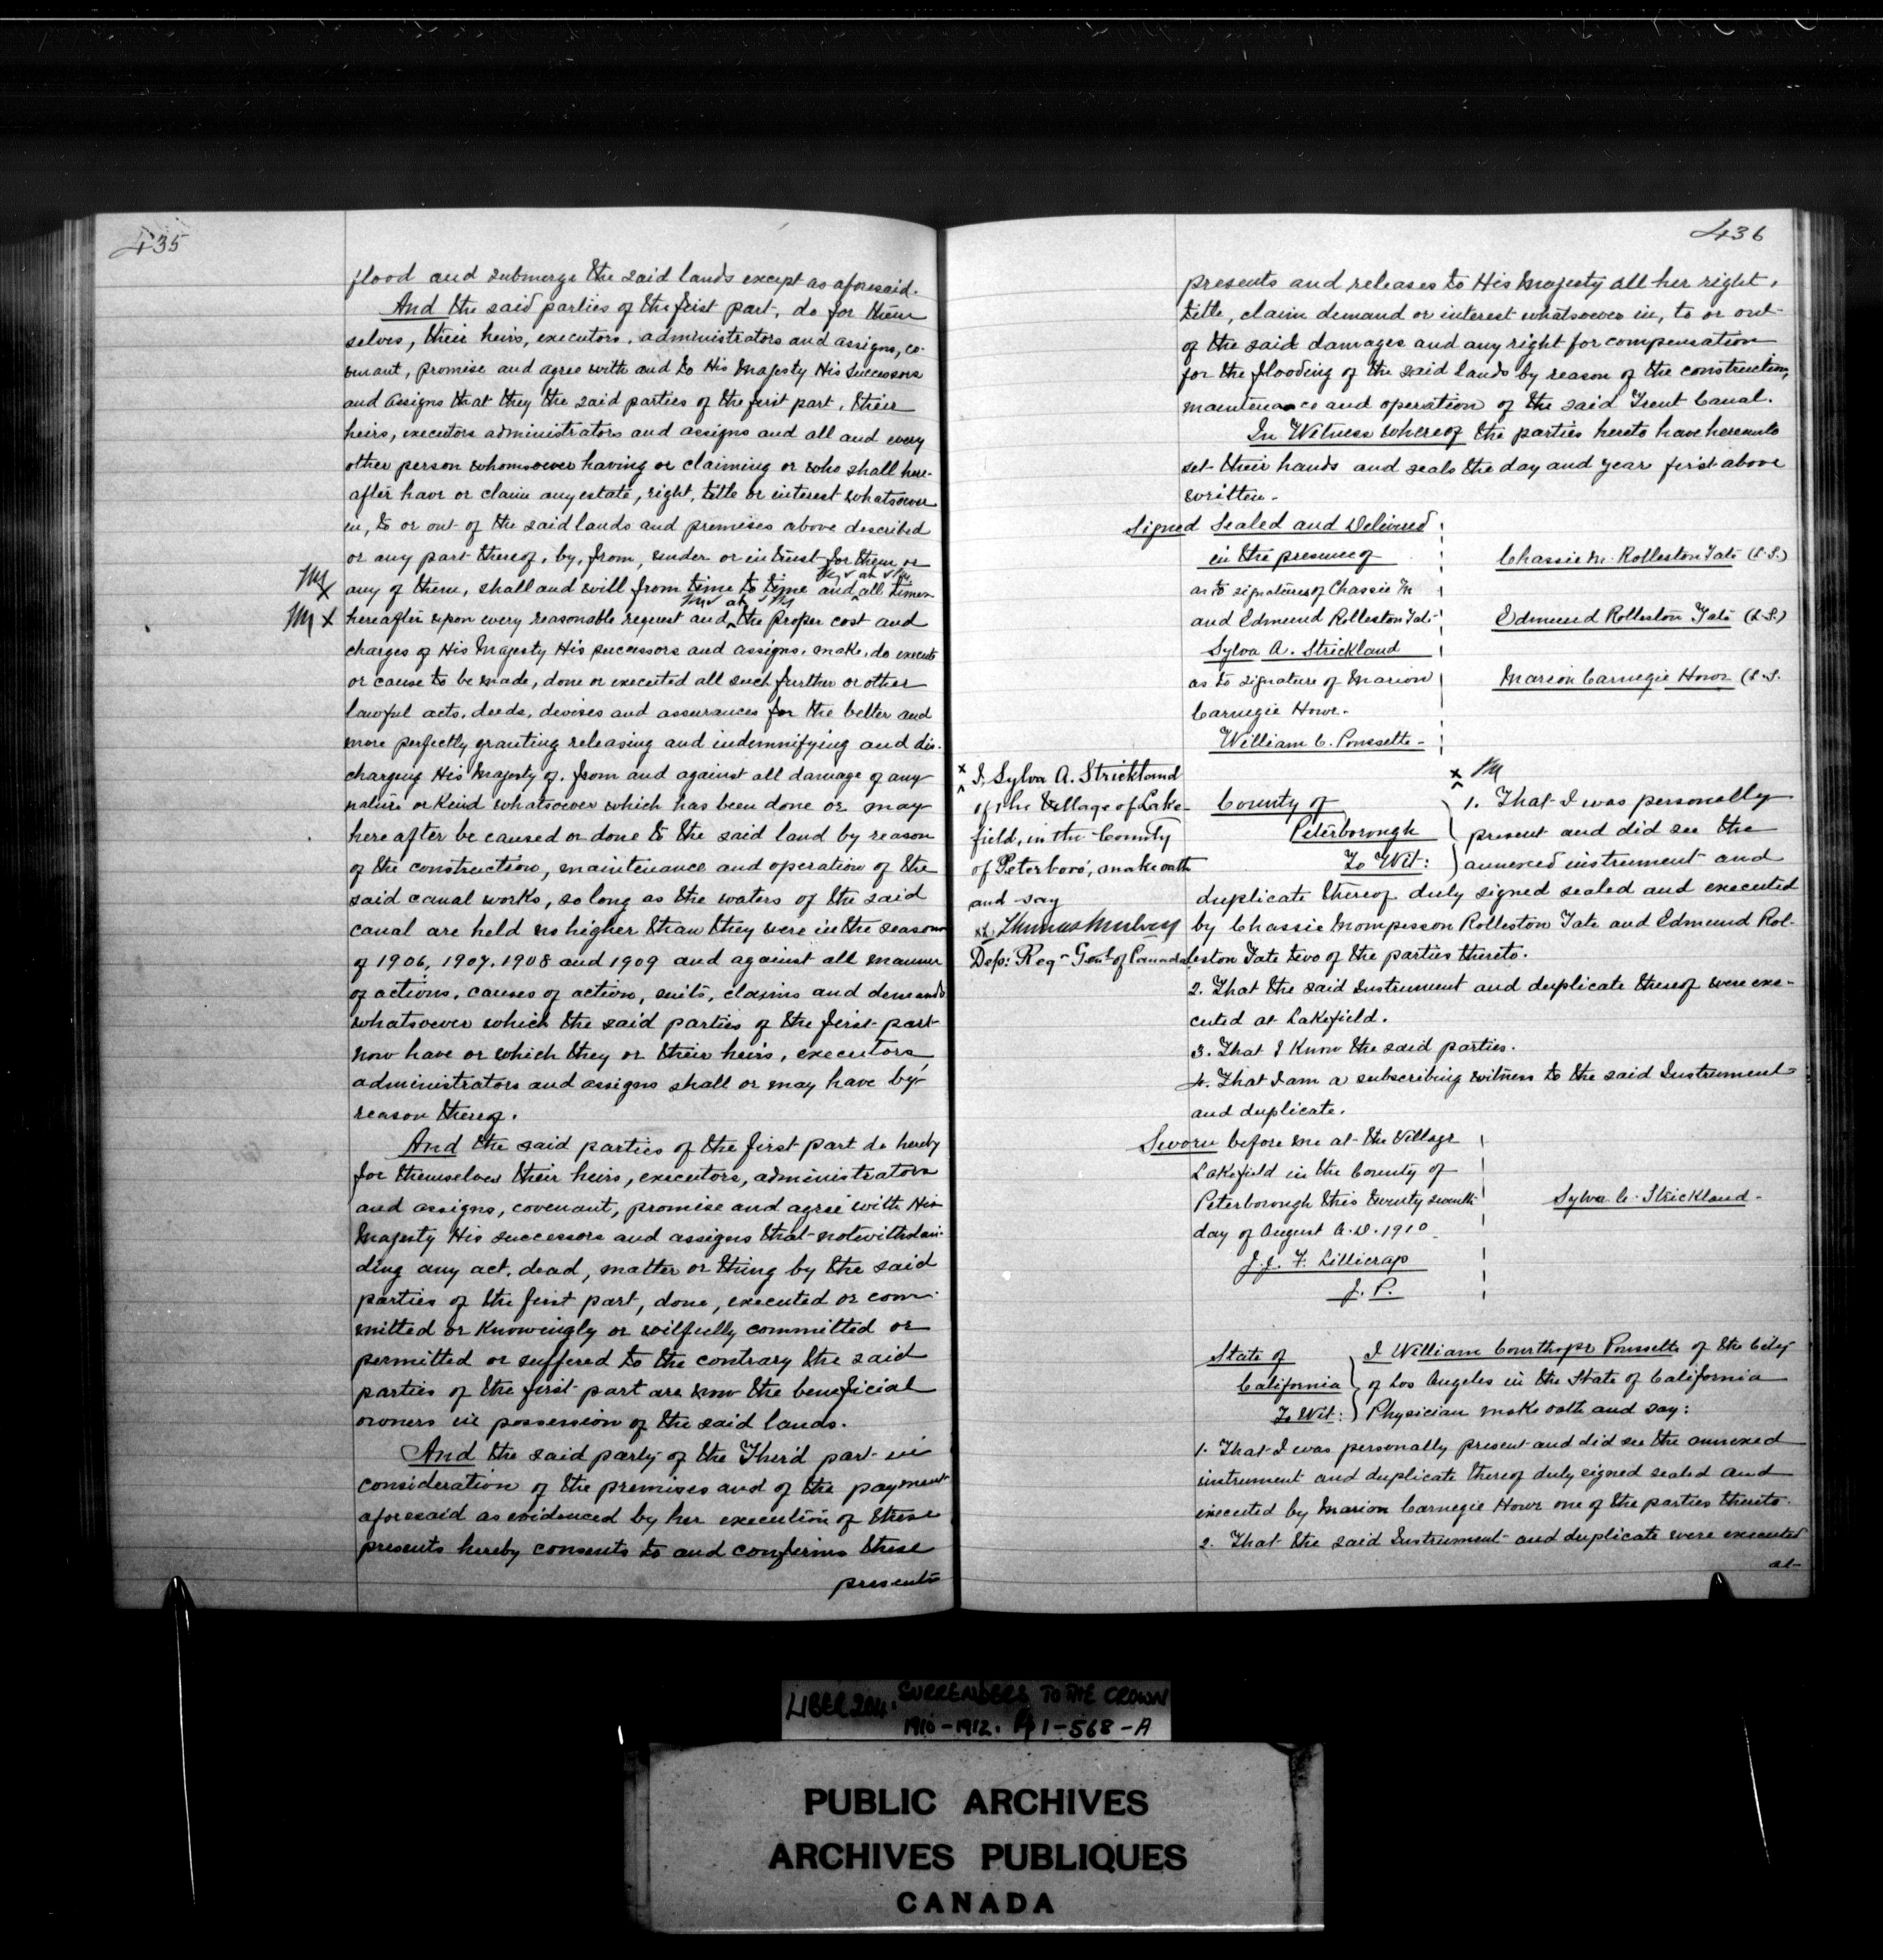 435
flood and submerge the said lands except as aforesaid.
And the said parties of the first part, do for them
selves, their heirs, executors, administrators and assigns, co-
venant, promise and agree with and to His Majesty His Successors
and assigns that they the said parties of the first part, their
heirs, executors administrators and assigns and all and every
other person whomsoever having or claiming or who shall here-
after have or claim any estate, right, title or interest whatsoever
in, to or out of the said lands and premises above described
or any part thereof, by, from, under or in trust for them or
any of them, shall and will from time to time and at all times
hereafter upon every reasonable request and at the proper cost and
charges of His Majesty His successors and assigns, make, do execute
or cause to be made, done or executed all such further or other
lawful acts, deeds, devises and assurances for the better and
more perfectly granting releasing and indemnifying and dis-
charging His Majesty of, from and against all damage of any
nature or kind whatsoever which has been done or may
hereafter be caused or done to the said land by reason
of the construction, maintenance and operation of the
said canal works, so long as the waters of the said
canal are held no higher than they were in the seasons
of 1906, 1907, 1908 and 1909 and against all manner
of actions, causes of action, suits, claims and demands
whatsoever which the said parties of the first part
now have or which they or their heirs, executors,
administrators and assigns shall or may have by
reason thereof.
And the said parties of the first part do hereby
for themselves their heirs, executors, administrators
and assigns, covenant, promise and agree with His
Majesty His successors and assigns that notwithstan-
ding any act, dead, matter or thing by the said
parties of the first part, done, executed or com-
mitted or knowingly or wilfully committed or
permitted or suffered to the contrary the said
parties of the first part are now the beneficial
owners in possession of the said lands.
And the said party of the Third part in
consideration of the premises and of the payment
aforesaid as evidenced by her execution of these
presents hereby consents to and confirms these
presents
436
presents and releases to His Majesty all her right,
title, claim demand or interest whatsoever in, to or out
of the said damages and any right for compensation
for the flooding of the said lands by reason of the construction,
maintenance and operation of the said Trent Canal.
In Witness whereof the parties hereto have hereunto
set their hands and seals the day and year first above
written.
Signed Sealed and Delivered
in the presence of
as to signatures of Chassie M
and Edmund Rolleston Tate
Sylva A. Strickland
as to signature of Marion
Carnegie Howe.
William C. Poussette
Chassie M. Rolleston Tate (L.S.)
Edmund Rolleston Tate (L.S.)
Marion Carnegie Howe (L.S.
x I, Sylva A. Strickland
of the Village of Lake-
field, in the County
of Peterboro', make oath
and say
Dep: Reg Genl of Canada
County of
Peterborough
To Wit:
x 1. That I was personally
present and did see the
annexed instrument and
duplicate thereof duly signed sealed and executed
by Chassie Mompesson Rolleston Tate and Edmund Rol-
leston Tate two of the parties thereto.
2. That the said Instrument and duplicate thereof were exe-
cuted at Lakefield.
3. That I know the said parties.
4. That I am a subscribing witness to the said Instrument
and duplicate.
Sworn before me at the Village
Lakefield in the County of
Peterborough this twenty seventh
day of August A.D. 1910
J.J. F. Lillicrap
J. P.
Sylva C. Strickland
State of
California
To Wit:
I William Courthope Poussette of the City
of Los Angeles in the State of California
Physician make oath and say:
1. That I was personally present and did see the annexed
instrument and duplicate thereof duly signed sealed and
executed by Marion Carnegie Howe one of the parties thereto.
2. That the said Instrument and duplicate were executed
at
LIBER 204. SURRENDERS TO THE CROWN
1910-1912. Pg 1-568-A
PUBLIC ARCHIVES
ARCHIVES PUBLIQUES
CANADA